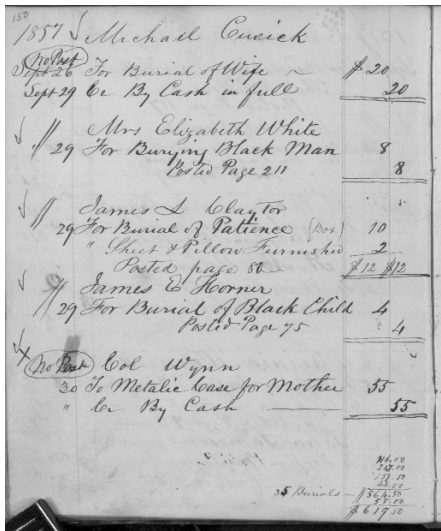 150
1857 Michael Cusick
No Post
Sept 26 For Burial of Wife ~ $20
Sept 29 Cr By Cash in full 20
Mrs Elizabeth White
" 29 For Burying Black Man 8
Posted Page 211 8
James L Claytor
" 29 For Burial of Patience (Box) 10
" Sheet & Pillow Furnished 2
Posted page 80 $12 $12
James E Horner
" 29 For Burial of Black Child 4
Posted Page 75 4
No Post Col Wynn
30 To Metalic Case for Mother 55
" Cr By Cash 55
216.00
247.00
35 Burials — $564.50
55.00
$619.50